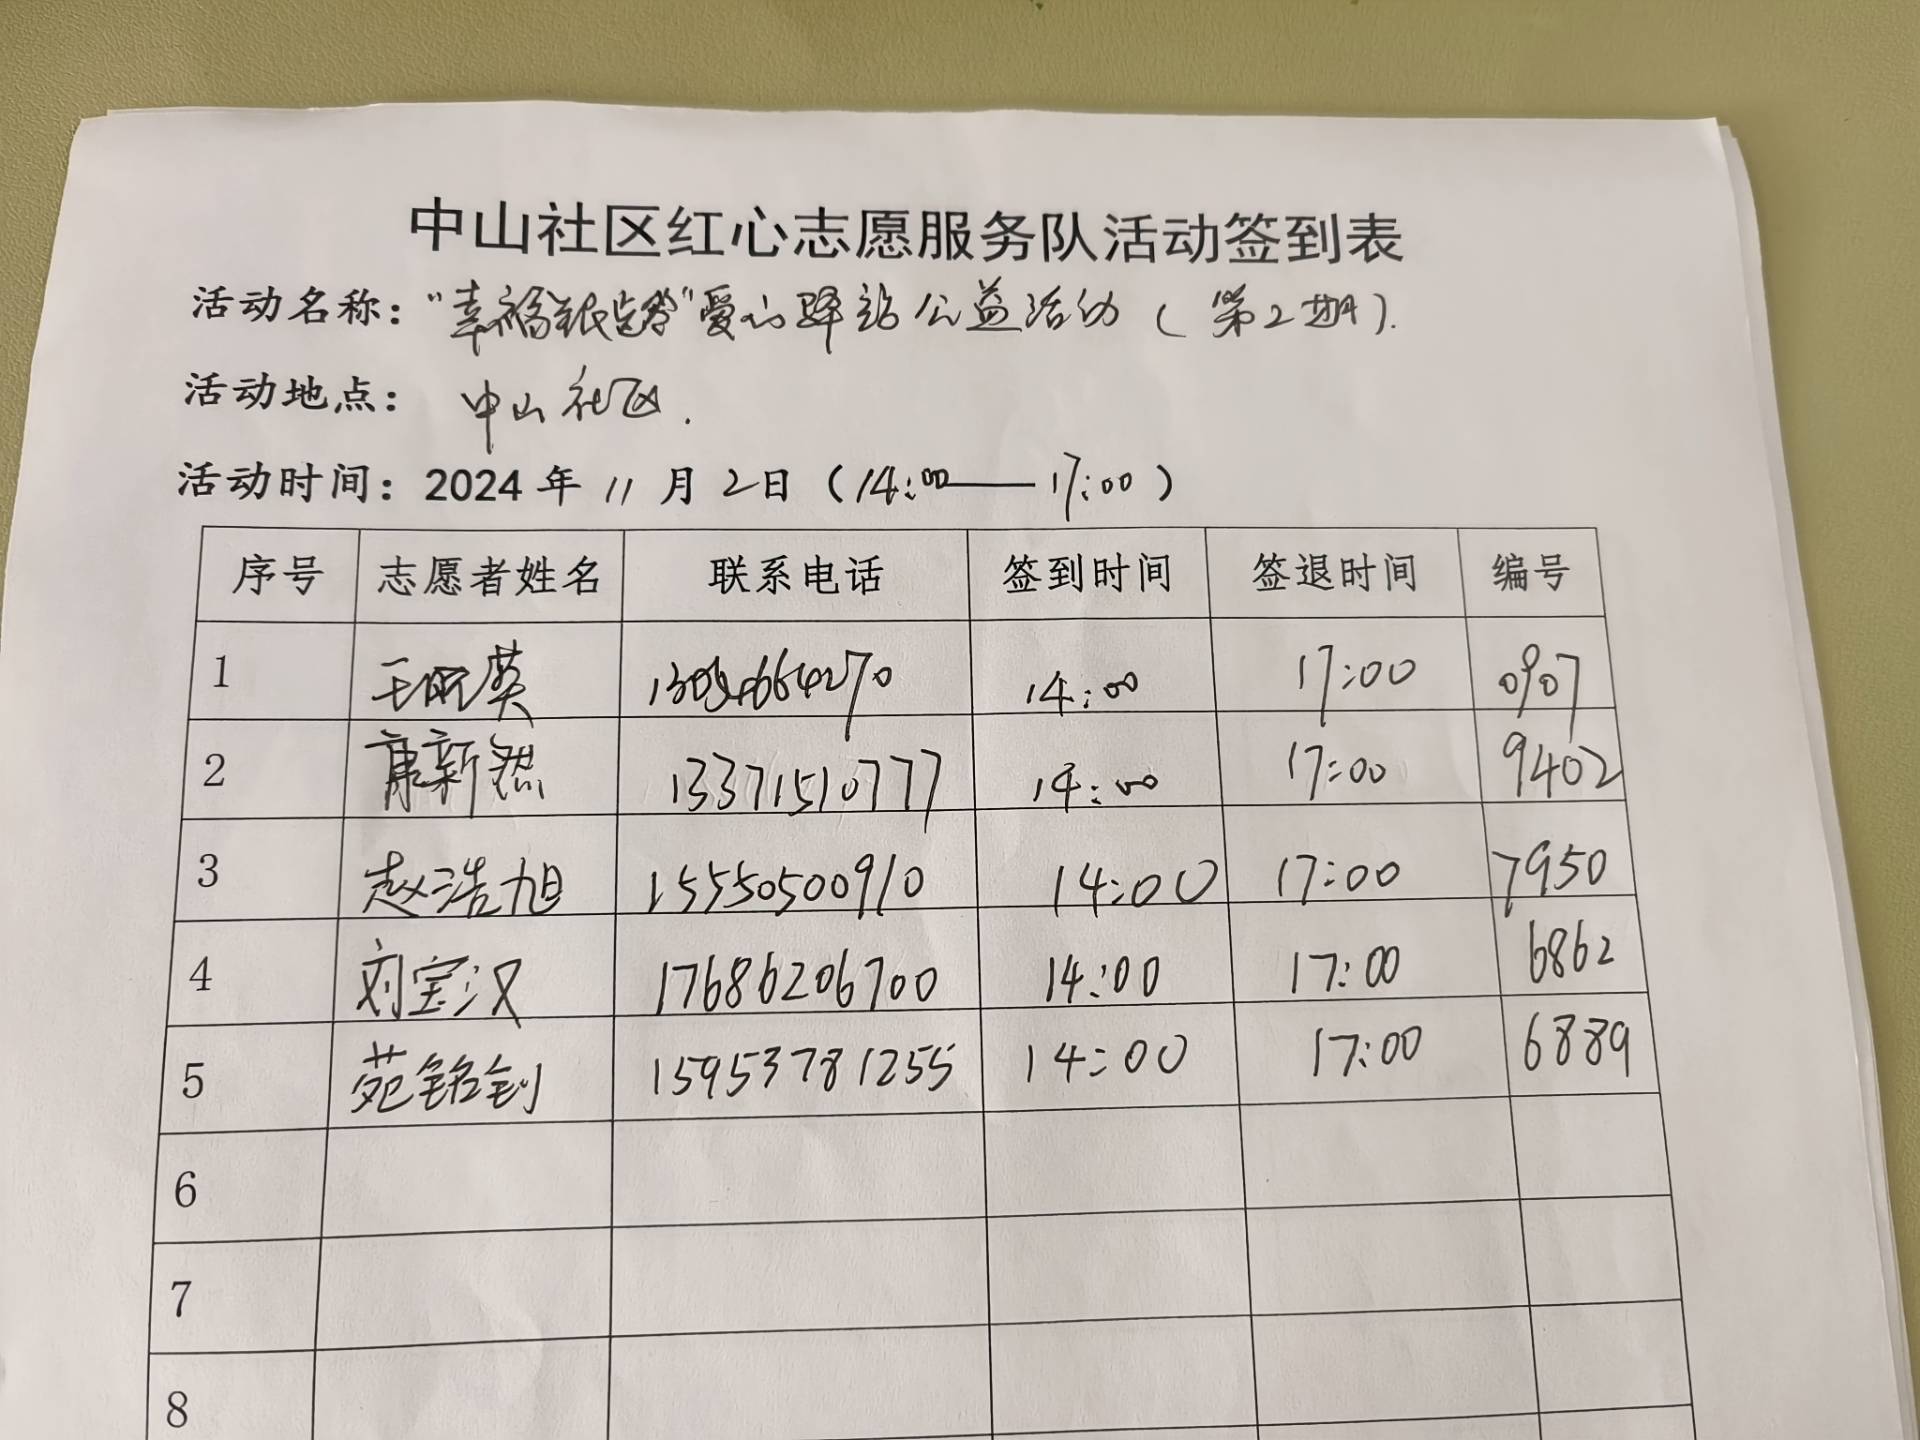 中山社区红心志愿服务队活动签到表
活动名称："幸福银龄"爱心驿站公益活动（第2期）.
活动地点：中山社区.
活动时间：2024年11月2日（14:00——17:00）
序号 志愿者姓名 联系电话 签到时间 签退时间 编号
1 王丽英 14:00 17:00 0907
2 康新然 13371510777 14:00 17:00 9402
3 赵浩旭 15550500910 14:00 17:00 7950
4 刘宝汉 17686206700 14:00 17:00 6862
5 苑铭钊 15953781255 14:00 17:00 6889
6
7
8